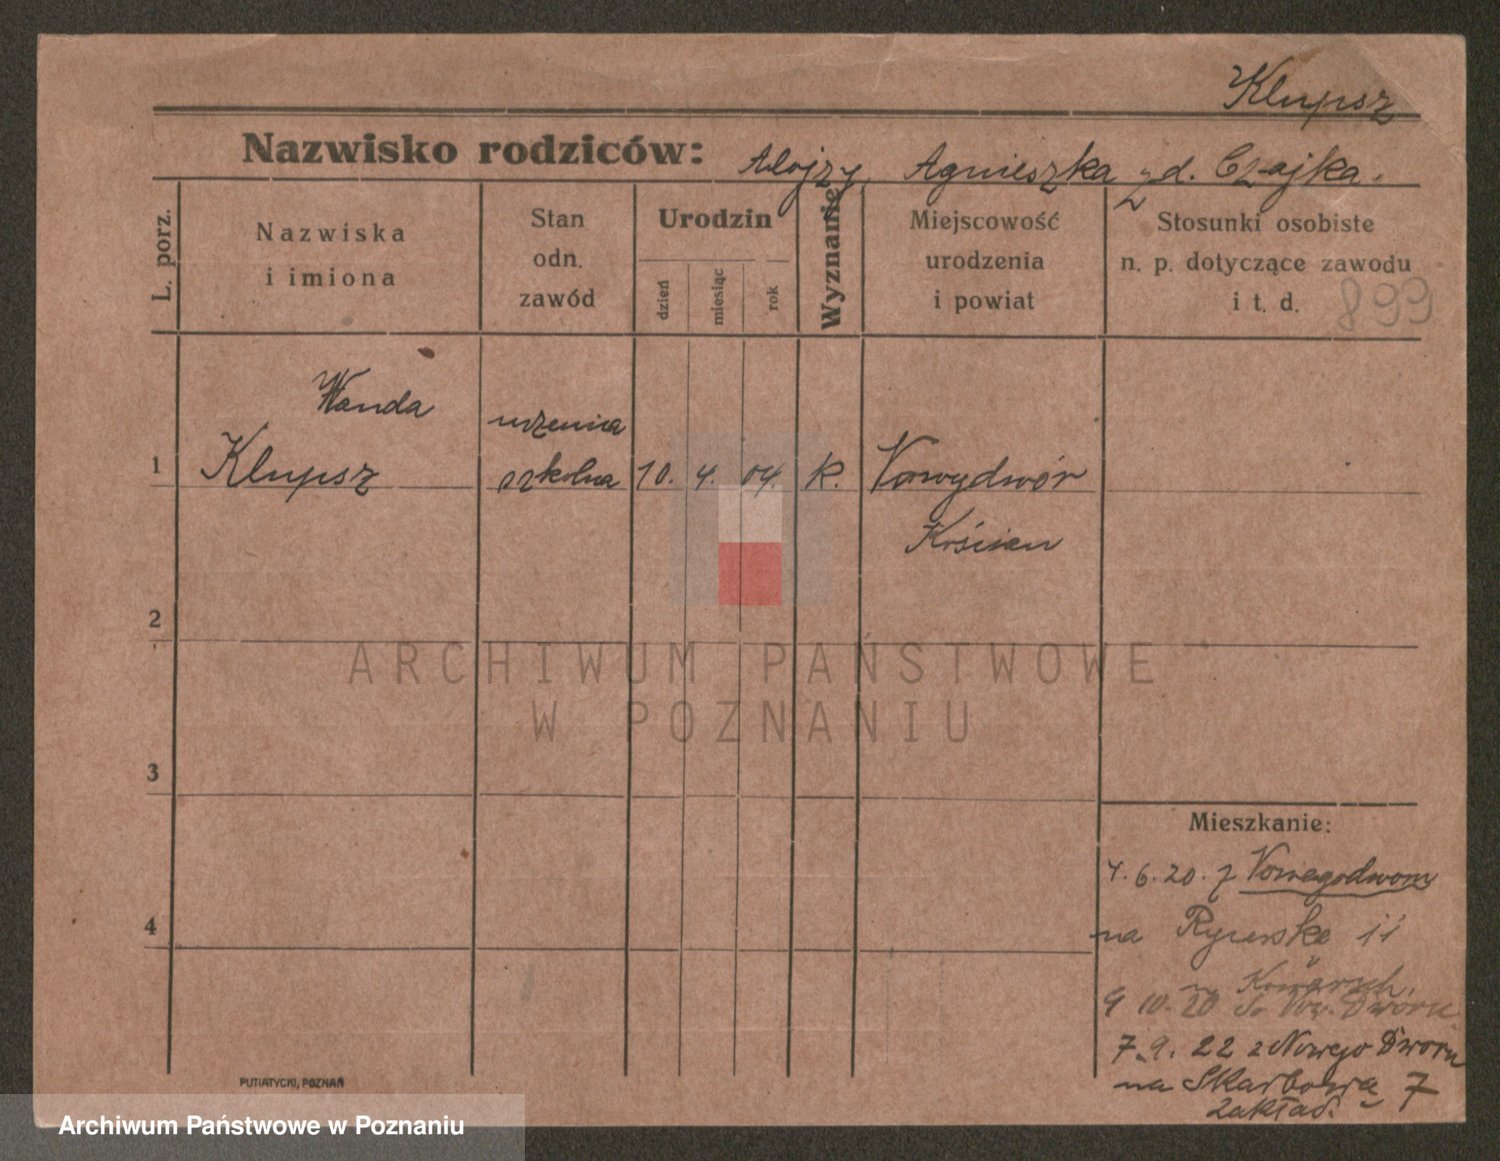 Klupsz
Nazwisko rodziców: Alojzy, Agnieszka z d. Czajka.
L. porz.
Nazwiska
i imiona
Stan
odn.
zawód
Urodzin
dzień
miesiąc
rok
Wyznanie
Miejscowość
urodzenia
i powiat
Stosunki osobiste
n. p. dotyczące zawodu
i t. d.
899
Wanda
1 Klupsz
uczenica
szkolna
10. 4. 04. k. Nowydwór
Kościan
2
ARCHIWUM PAŃSTWOWE
W POZNANIU
3
4
Mieszkanie:
4.6.20. z Nowegodworu
na Rycerska 11
9 10. 20 do Now. Dworu
7.9. 22 z Nowego Dworu
na Skarbową 7
Zakład.
PUTIATYCKI, POZNAŃ
Archiwum Państwowe w Poznaniu